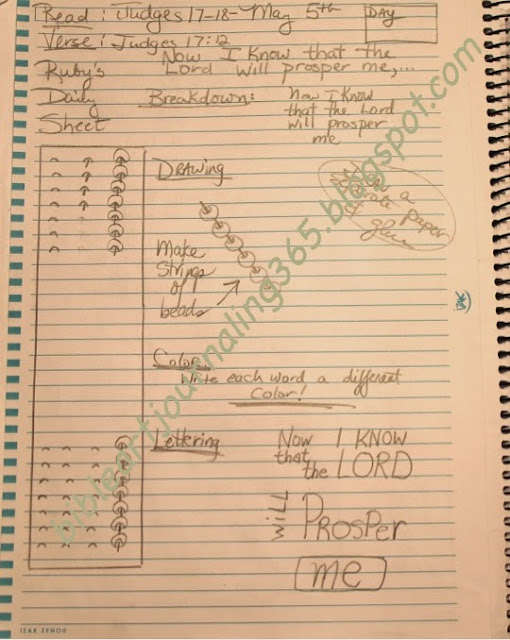 Read: Judges 17-18-May 5th
DAY
Verse: Judges 17:12
Now I Know that the
Lord will prosper me,...
Ruby's
Daily
Sheet
Breakdown:
Now I Know
that the Lord
will prosper
me
DRAWING
a
paper
glue
Make
Strings
of
beads
Color
Write each word a different
Color!
Lettering
Now I KNOW
that the LORD
will
PROSPER
me
bibleartjournaling365.blogspot.com